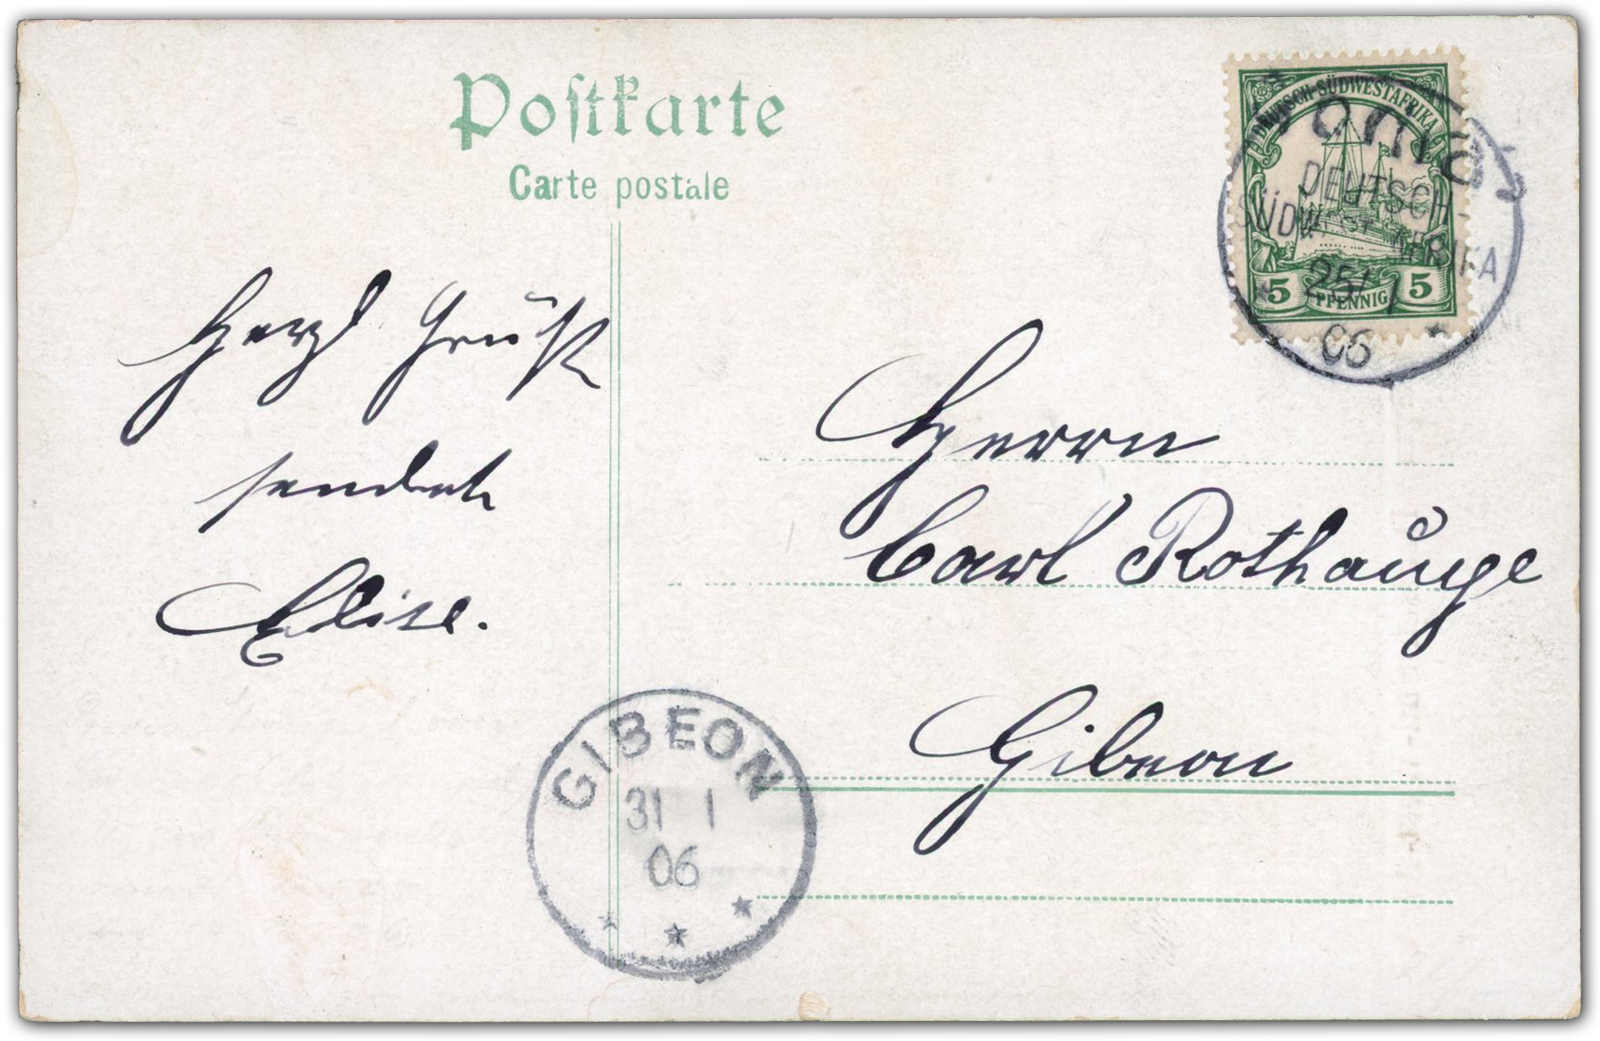 Postkarte
Carte postale
DEUTSCH-SÜDWESTAFRIKA
5 PFENNIG 5
DEUTSCH-
SÜDWESTAFRIKA
25/1
06
Herzl Gruß
sendet
Elise.
Herrn
Carl Rothauge
Gibeon
GIBEON
31 1
06